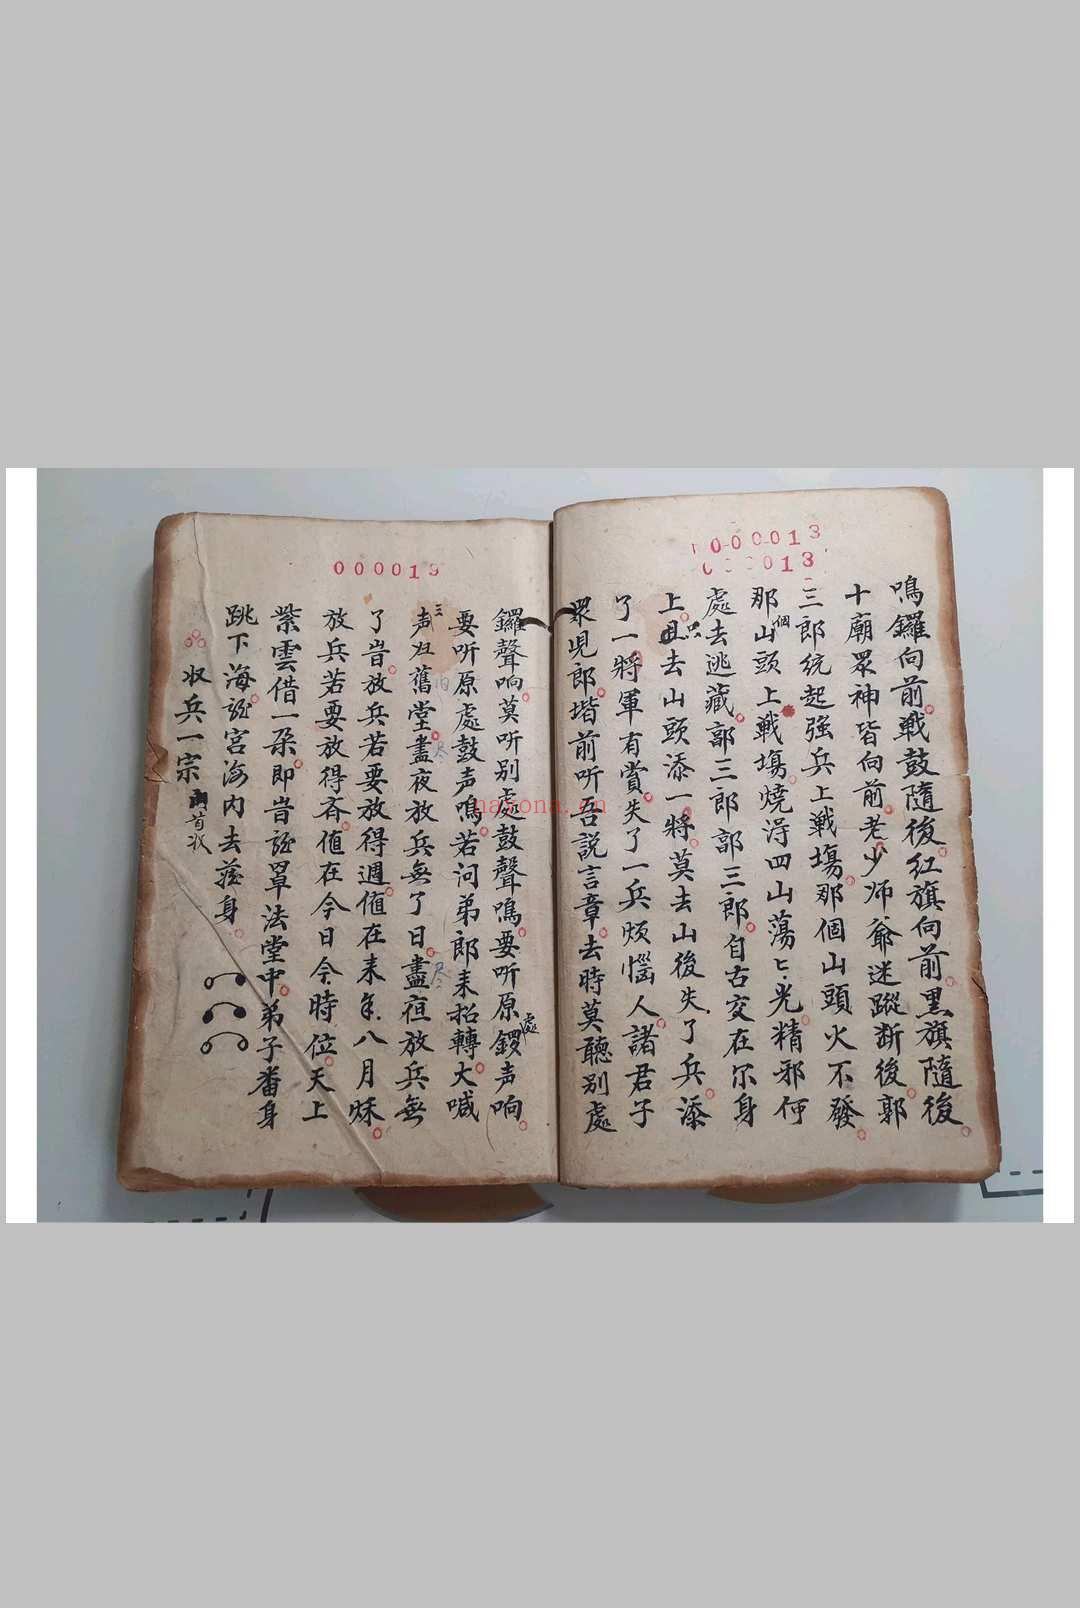 000013
000013
鳴鑼向前戰鼓隨後紅旗向前黑旗隨後
十廟眾神皆向前老少師爺迷蹤斷後郭
三郎統起強兵上戰塲那個山頭火不發
那個山頭上戰塲燒淂四山蕩匕光精邪何
處去逃藏郭三郎郭三郎自古交在尔身
上只去山頭添一將莫去山後失了兵添
了一將軍有賞失了一兵煩惱人諸君子
眾児郎堦前听吾説言章去時莫聽别處
鑼聲响莫听别處鼓聲鳴要听原處鑼声响
要听原處鼓声鳴若问弟郎耒招轉大喊
三声归舊堂晝夜放兵無了日晝夜放兵無
了旹放兵若要放得週值在耒年八月秌
放兵若要放得齐值在今日今時位天上
紫雲借一朶即旹罩法堂中弟子番身
跳下海宮海内去藏身
収兵一宗
000019
nayona.cn